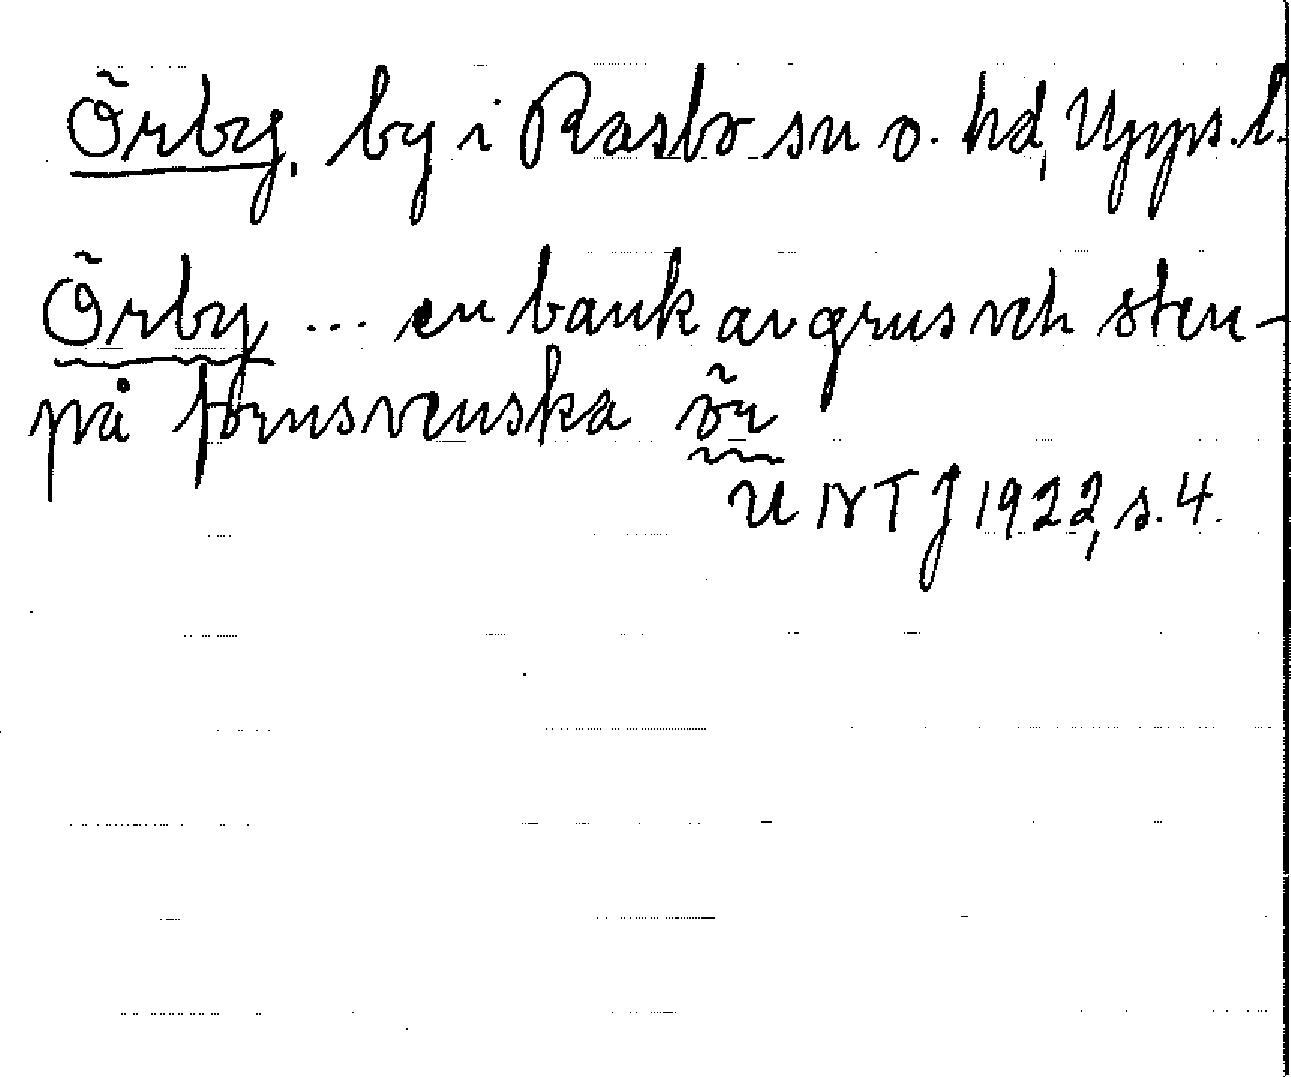 Örby, by i Rasbo sn o. hd, Upps. l.
Örby ... en bank av grus och sten –
på fornsvenska ör
UNTJ 1922, s. 4.